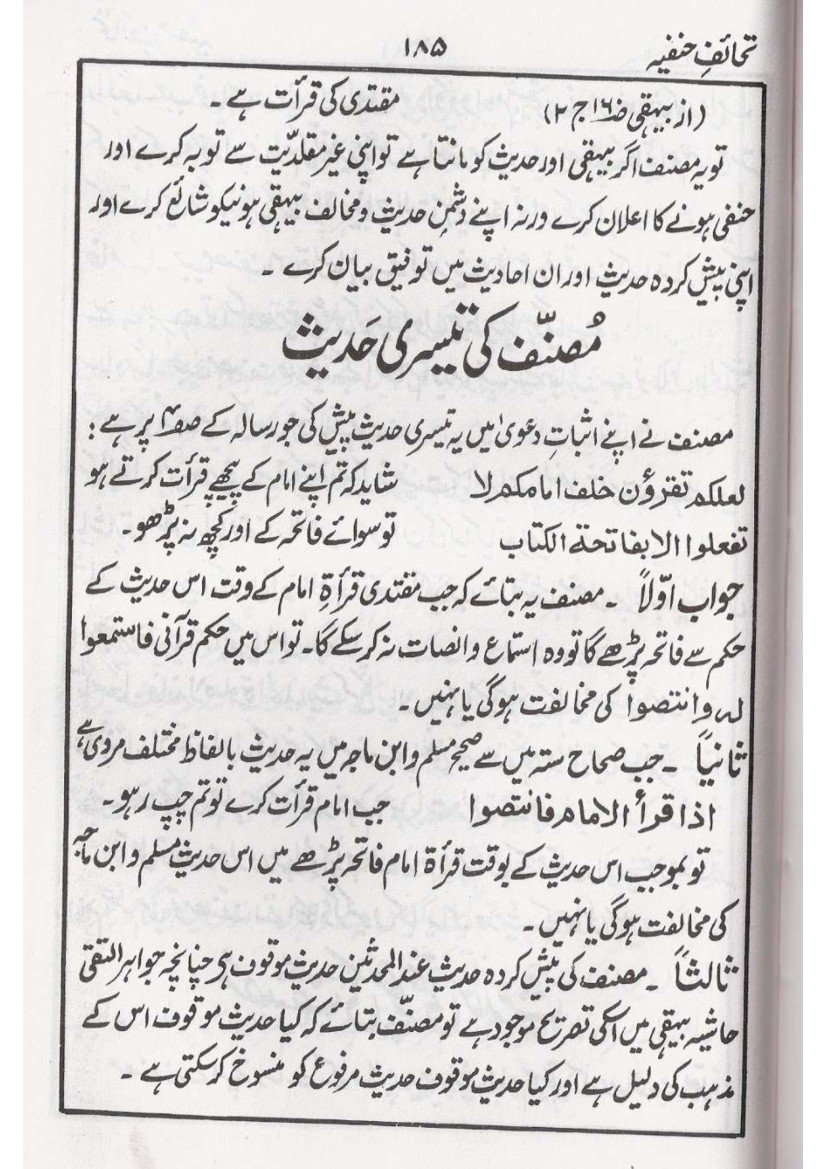 تحائفِ حنفیہ ۱۸۵
(از بیہقی صـ۱۶ ج ۲) مقتدی کی قرأت ہے ۔
تو یہ مصنف اگر بیہقی اور حدیث کو مانتا ہے تو اپنی غیر مقلدّیت سے توبہ کرے اور
حنفی ہونے کا اعلان کرے ورنہ اپنے دشمنِ حدیث و مخالف بیہقی ہونیکو شائع کرے اور
اپنی پیش کردہ حدیث اور ان احادیث میں توفیق بیان کرے ۔
مُصنّف کی تیسری حَدیث
مصنف نے اپنے اثباتِ دعویٰ میں یہ تیسری حدیث پیش کی جو رسالہ کے صـ۴ پر ہے :
لعلکم تقرؤن خلف امامکم لا شاید کہ تم اپنے امام کے پیچھے قرأت کرتے ہو
تفعلوا الا بفاتحة الکتاب تو سوائے فاتحہ کے اور کچھ نہ پڑھو ۔
جواب اوّلاً ۔ مصنف یہ بتائے کہ جب مقتدی قرأۃ امام کے وقت اس حدیث کے
حکم سے فاتحہ پڑھے گا تو وہ استماع و انصات نہ کر سکے گا ۔ تو اس میں حکم قرآنی فاستمعوا
لہ و انتصوا کی مخالفت ہوگی یا نہیں ۔
ثانیاً ۔ جب صحاح ستہ میں سے صحیح مسلم و ابن ماجہ میں یہ حدیث بالفاظ مختلف مروی ہے
اذا قرأ الامام فانتصوا جب امام قرأت کرے تو تم چپ رہو ۔
تو بموجب اس حدیث کے بوقت قرأۃ امام فاتحہ پڑھے میں اس حدیث مسلم و ابن ماجہ
کی مخالفت ہوگی یا نہیں ۔
ثالثاً ۔ مصنف کی پیش کردہ حدیث عند المحدثین حدیث موقوف ہے چنانچہ جواہر النقی
حاشیہ بیہقی میں اسکی تصریح موجود ہے تو مصنّف بتائے کہ کیا حدیث موقوف اس کے
مذہب کی دلیل ہے اور کیا حدیث موقوف حدیث مرفوع کو منسوخ کر سکتی ہے ۔